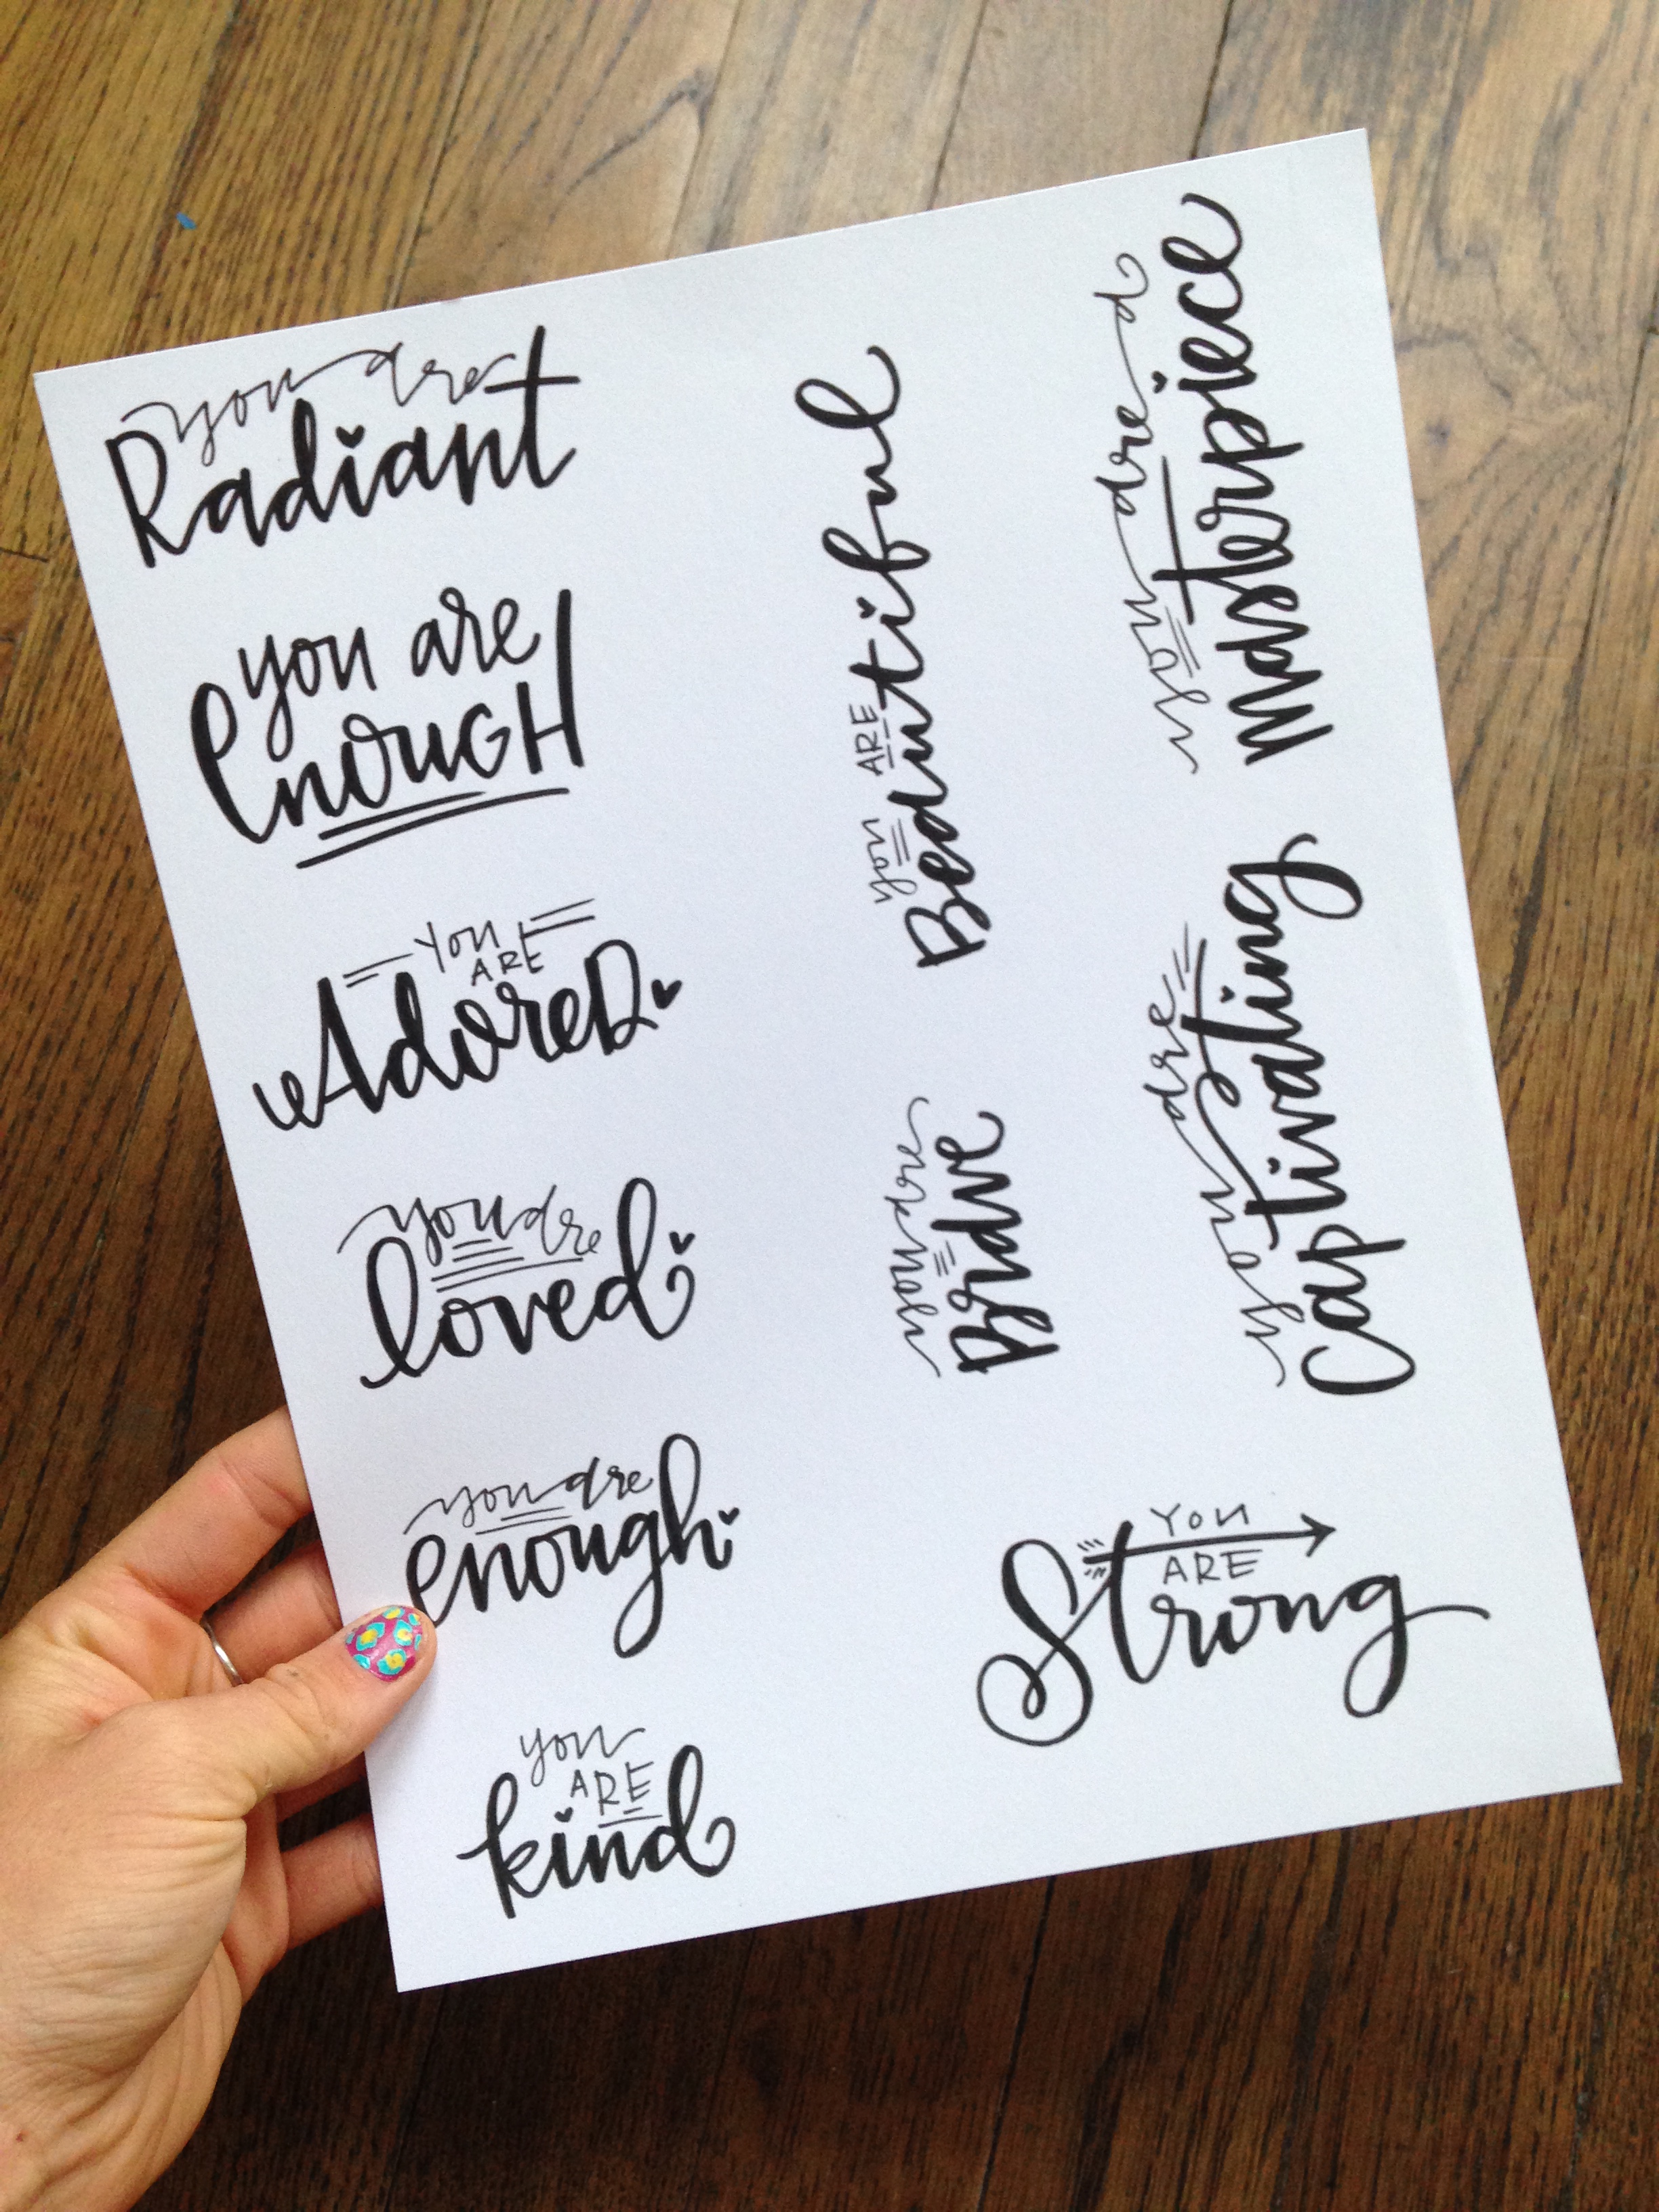 you are
Radiant
you are
EnouGH
You
ARE
AdoreD
you are
loved
you are
enough
you
ARE
kind
you ARE
Beautiful
you are
Brave
you are a
Masterpiece
you are
Captivating
You
ARE
Strong